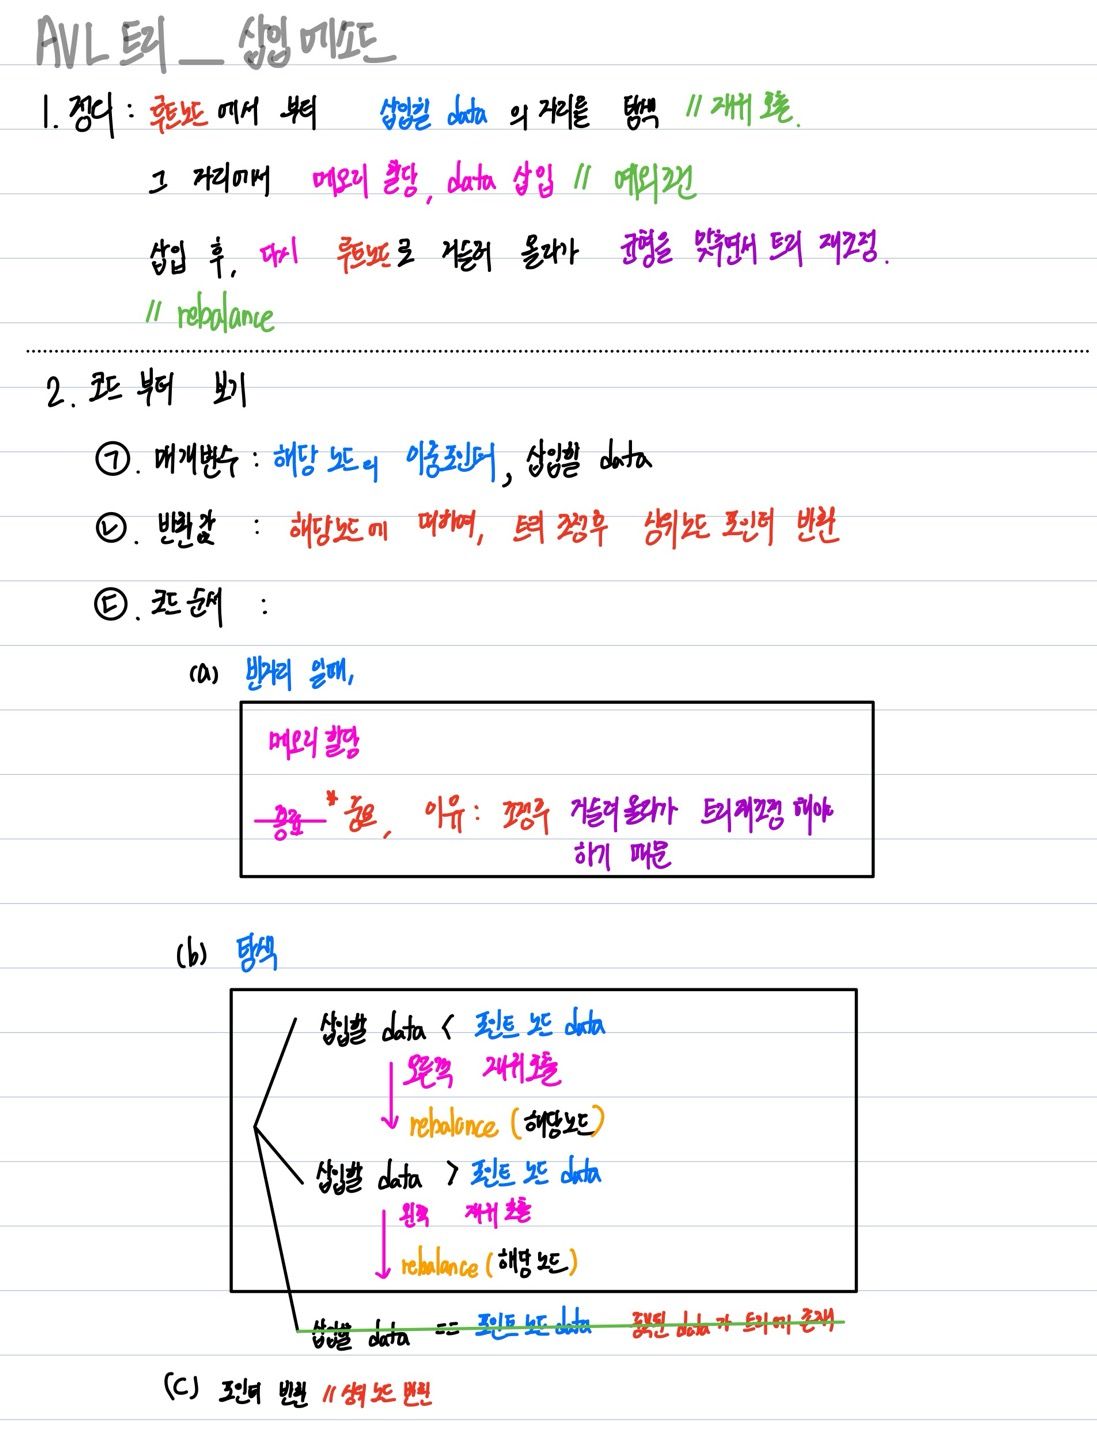 AVL 트리 _ 삽입 메소드
1. 정의 : 루트노드 에서 부터 삽입할 data 의 자리를 탐색 // 재귀 호출.
그 자리에서 메모리 할당, data 삽입 // 예외조건
삽입 후, 다시 루트노드로 거슬러 올라가 균형을 맞추면서 트리 재조정.
// rebalance
2. 코드 부터 보기
㉠. 매개변수 : 해당 노드의 이중포인터, 삽입할 data
㉡. 반환값 : 해당노드에 대하여, 트리 조정후 상위노드 포인터 반환
㉢. 코드 순서 :
(a) 빈자리 일때,
메모리 할당
종료 * 중요, 이유 : 조정후 거슬러올라가 트리재조정 해야
하기 때문
(b) 탐색
삽입할 data < 포인트 노드 data
오른쪽 재귀호출
rebalance (해당노드)
삽입할 data > 포인트 노드 data
왼쪽 재귀 호출
rebalance (해당 노드)
삽입할 data == 포인트 노드 data 중복된 data가 트리에 존재
(C) 포인터 반환 // 상위 노드 반환